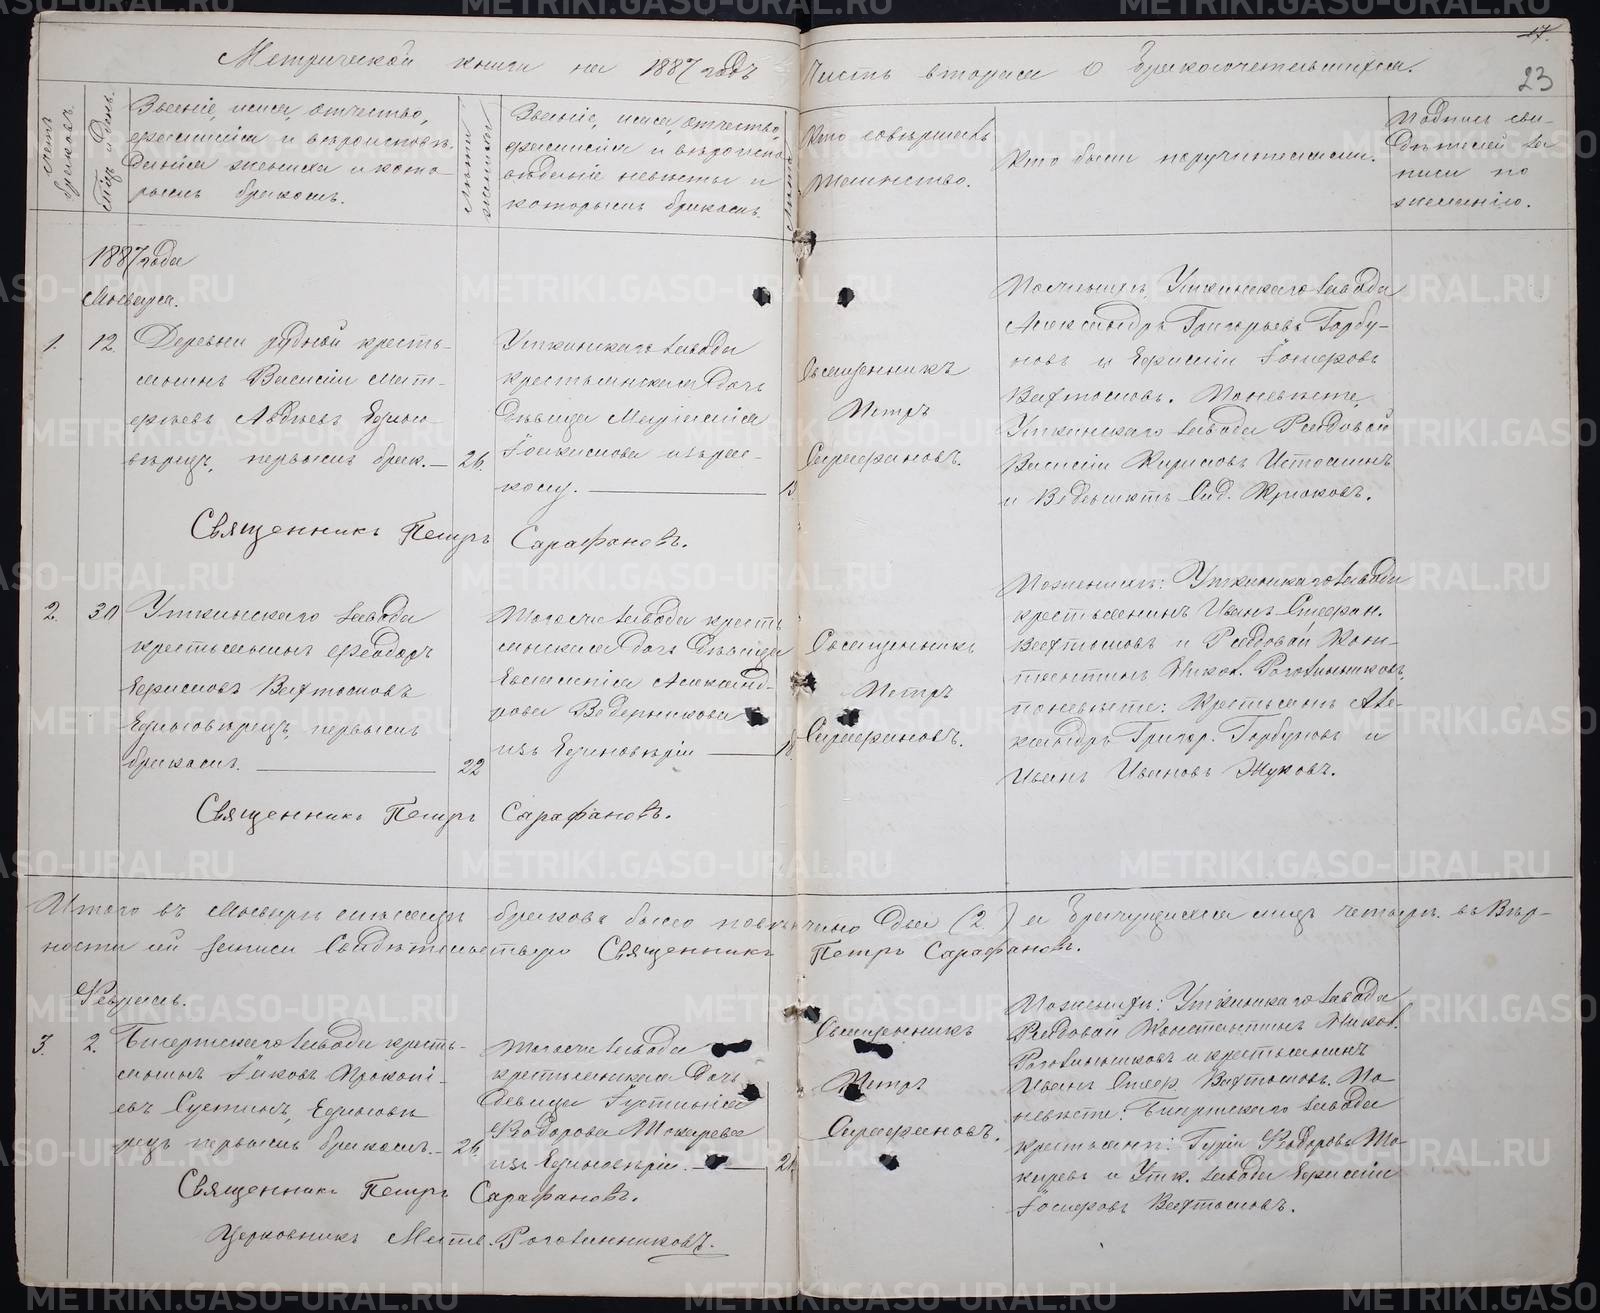 17.
23
Метрической книги на 1887 годъ
Часть вторая о бракосочетавшихся.
Счетъ браковъ.
Мѣсяцъ и День.
Званіе, имя, отчество,
фамилія и вѣроисповѣ-
даніе жениха и кото-
рымъ бракомъ.
Лѣта жениха
Званіе, имя, отчество,
фамилія и вѣроиспо-
вѣданіе невѣсты и
которымъ бракомъ.
Лѣта
Кто совершалъ
таинство.
Кто были поручителями.
Подпись сви-
дѣтелей за
писи по
желанію.
1887 года
Января.
1.
12.
Деревни крестья-
нинъ Василій Мат-
фѣевъ Авдѣевъ Едино-
вѣрецъ, первымъ брак.
26.
Уткинскаго завода
крестьянская дочь
дѣвица
Іоакимова изъ рас-
колу.
Священникъ
Петръ
Сарафановъ.
По женихѣ, Уткинскаго завода
Александръ Григорьевъ Горбу-
новъ и Ефимій Іосифовъ
Вахтомовъ. По невѣстѣ,
Уткинскаго завода Рядовой
Василій Кириловъ Истоминъ
и Сид. Крюковъ.
Священникъ Петръ Сарафановъ.
2.
30
Уткинскаго завода
крестьянинъ Феодоръ
Ефимовъ Вахтомовъ
Единовѣрецъ, первымъ
бракомъ.
22
Тогоже завода кресть
янская дочь дѣвица
Евлампія Александ-
рова Ведерникова
изъ Единовѣрія
18.
Священникъ
Петръ
Сарафановъ.
По женихѣ: Уткинскаго завода
крестьянинъ Иванъ Стефан.
Вахтомовъ и Рядовой Кон-
стантинъ Никол. Роговинниковъ,
по невѣстѣ: Крестьяне Але-
ксандръ Григор. Горбуновъ и
Иванъ Ивановъ Жуковъ.
Священникъ Петръ Сарафановъ.
Итого въ Январѣ мѣсяцѣ браковъ было повѣнчано два (2) а брачущихся лицъ четыре. въ Вѣр-
ности сей записи Свидѣтельствую Священникъ Петръ Сарафановъ.
Февраль.
3.
2.
Бисертскаго завода кресть-
янинъ Іаковъ Прокопі-
евъ Сметинъ, Единовѣ
рецъ первымъ бракомъ.
26.
Тогоже завода
крестьянская дочь
дѣвица Іустинія
Ѳедорова Токарева
изъ Единовѣрія.
Священникъ
Петръ
Сарафановъ.
По женихѣ: Уткинскаго завода
Рядовой Константинъ Никол.
Роговинниковъ и крестьянинъ
Иванъ Стеф. Вахтомовъ. По
невѣстѣ: Бисертскаго завода
крестьяне: Гурій Ѳедоровъ То-
каревъ и Утк. завода Ефимій
Іосифовъ Вахтомовъ.
Священникъ Петръ Сарафановъ.
Церковникъ Матв. Роговинниковъ.
METRIKI.GASO-URAL.RU